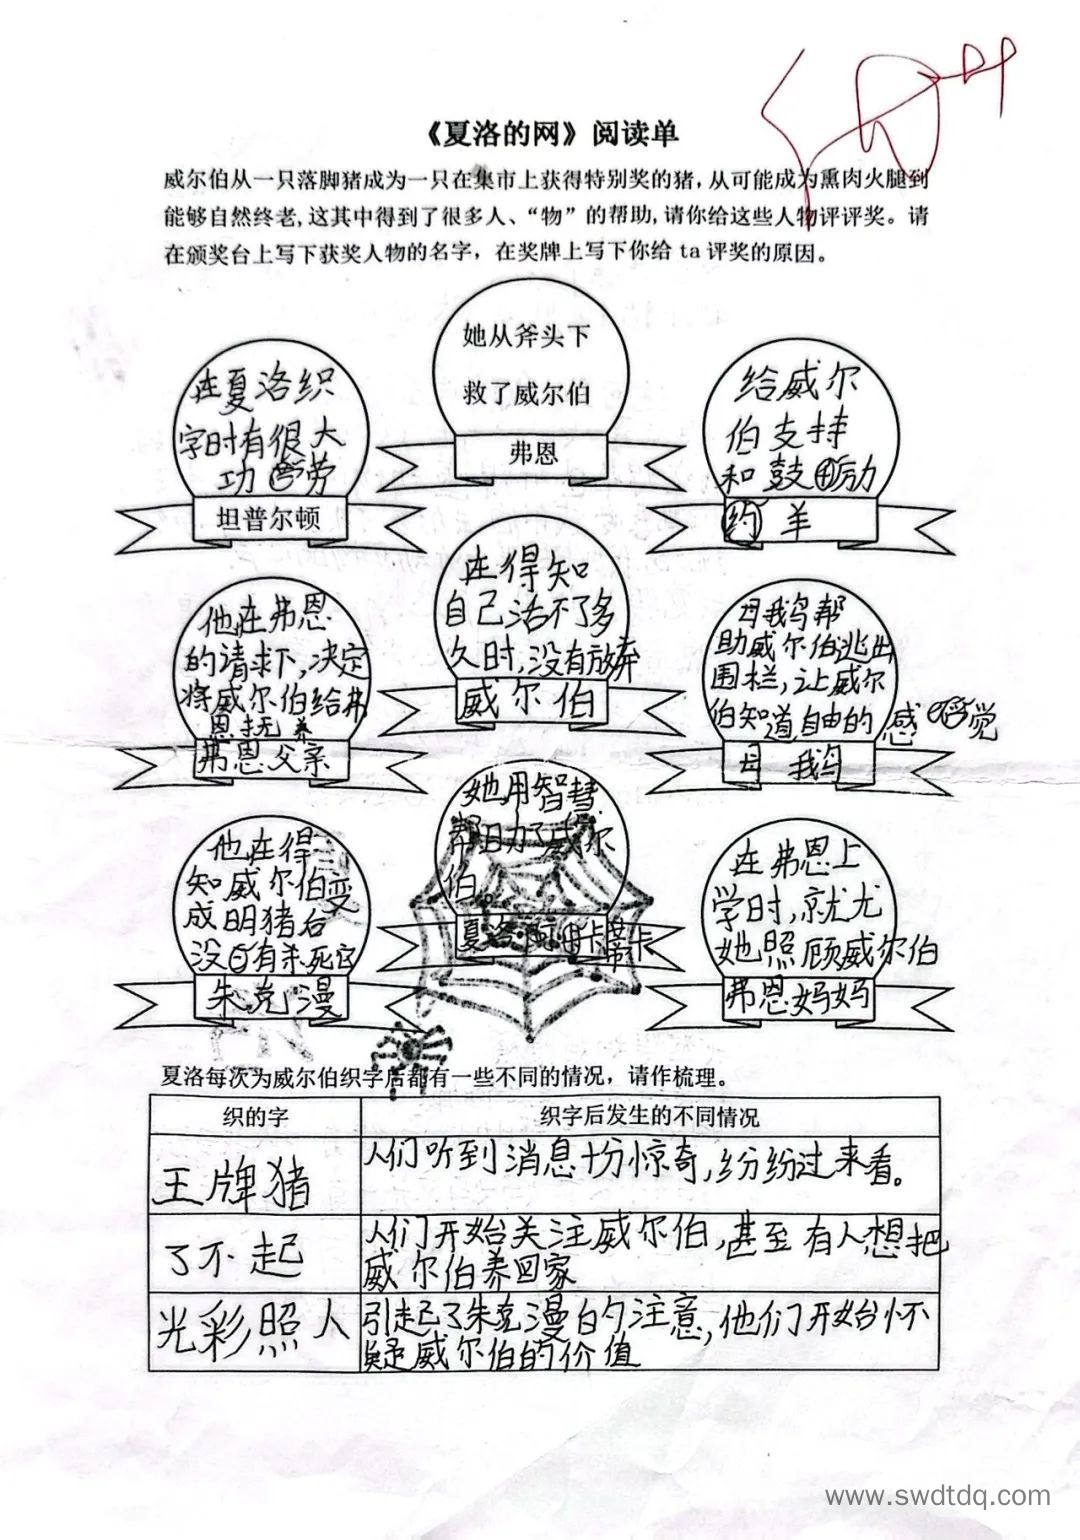 《夏洛的网》阅读单
威尔伯从一只落脚猪成为一只在集市上获得特别奖的猪，从可能成为熏肉火腿到
能够自然终老，这其中得到了很多人、“物”的帮助，请你给这些人物评评奖。请
在颁奖台上写下获奖人物的名字，在奖牌上写下你给 ta 评奖的原因。
在夏洛织
字时有很大
功劳
坦普尔顿
她从斧头下
救了威尔伯
弗恩
给威尔
伯支持
和鼓励
羊
他在弗恩
的请求下，决定
将威尔伯给弗
恩抚养
弗恩父亲
在得知
自己活不了多
久时，没有放弃
威尔伯
母鹅帮
助威尔伯逃出
围栏，让威尔
伯知道自由的感觉
母鹅
他在得
知威尔伯变
成明猪后
没有杀死它
朱克漫
她用智慧
帮助了威尔
伯。
夏洛·阿·卡蒂卡
在弗恩上
学时，就尤
她照顾威尔伯
弗恩妈妈
夏洛每次为威尔伯织字后都有一些不同的情况，请作梳理。
织的字
织字后发生的不同情况
王牌猪
人们听到消息十分惊奇，纷纷过来看。
了不起
人们开始关注威尔伯，甚至有人想把
威尔伯养回家
光彩照人
引起了朱克漫的注意，他们开始怀
疑威尔伯的价值
www.swdtdq.com